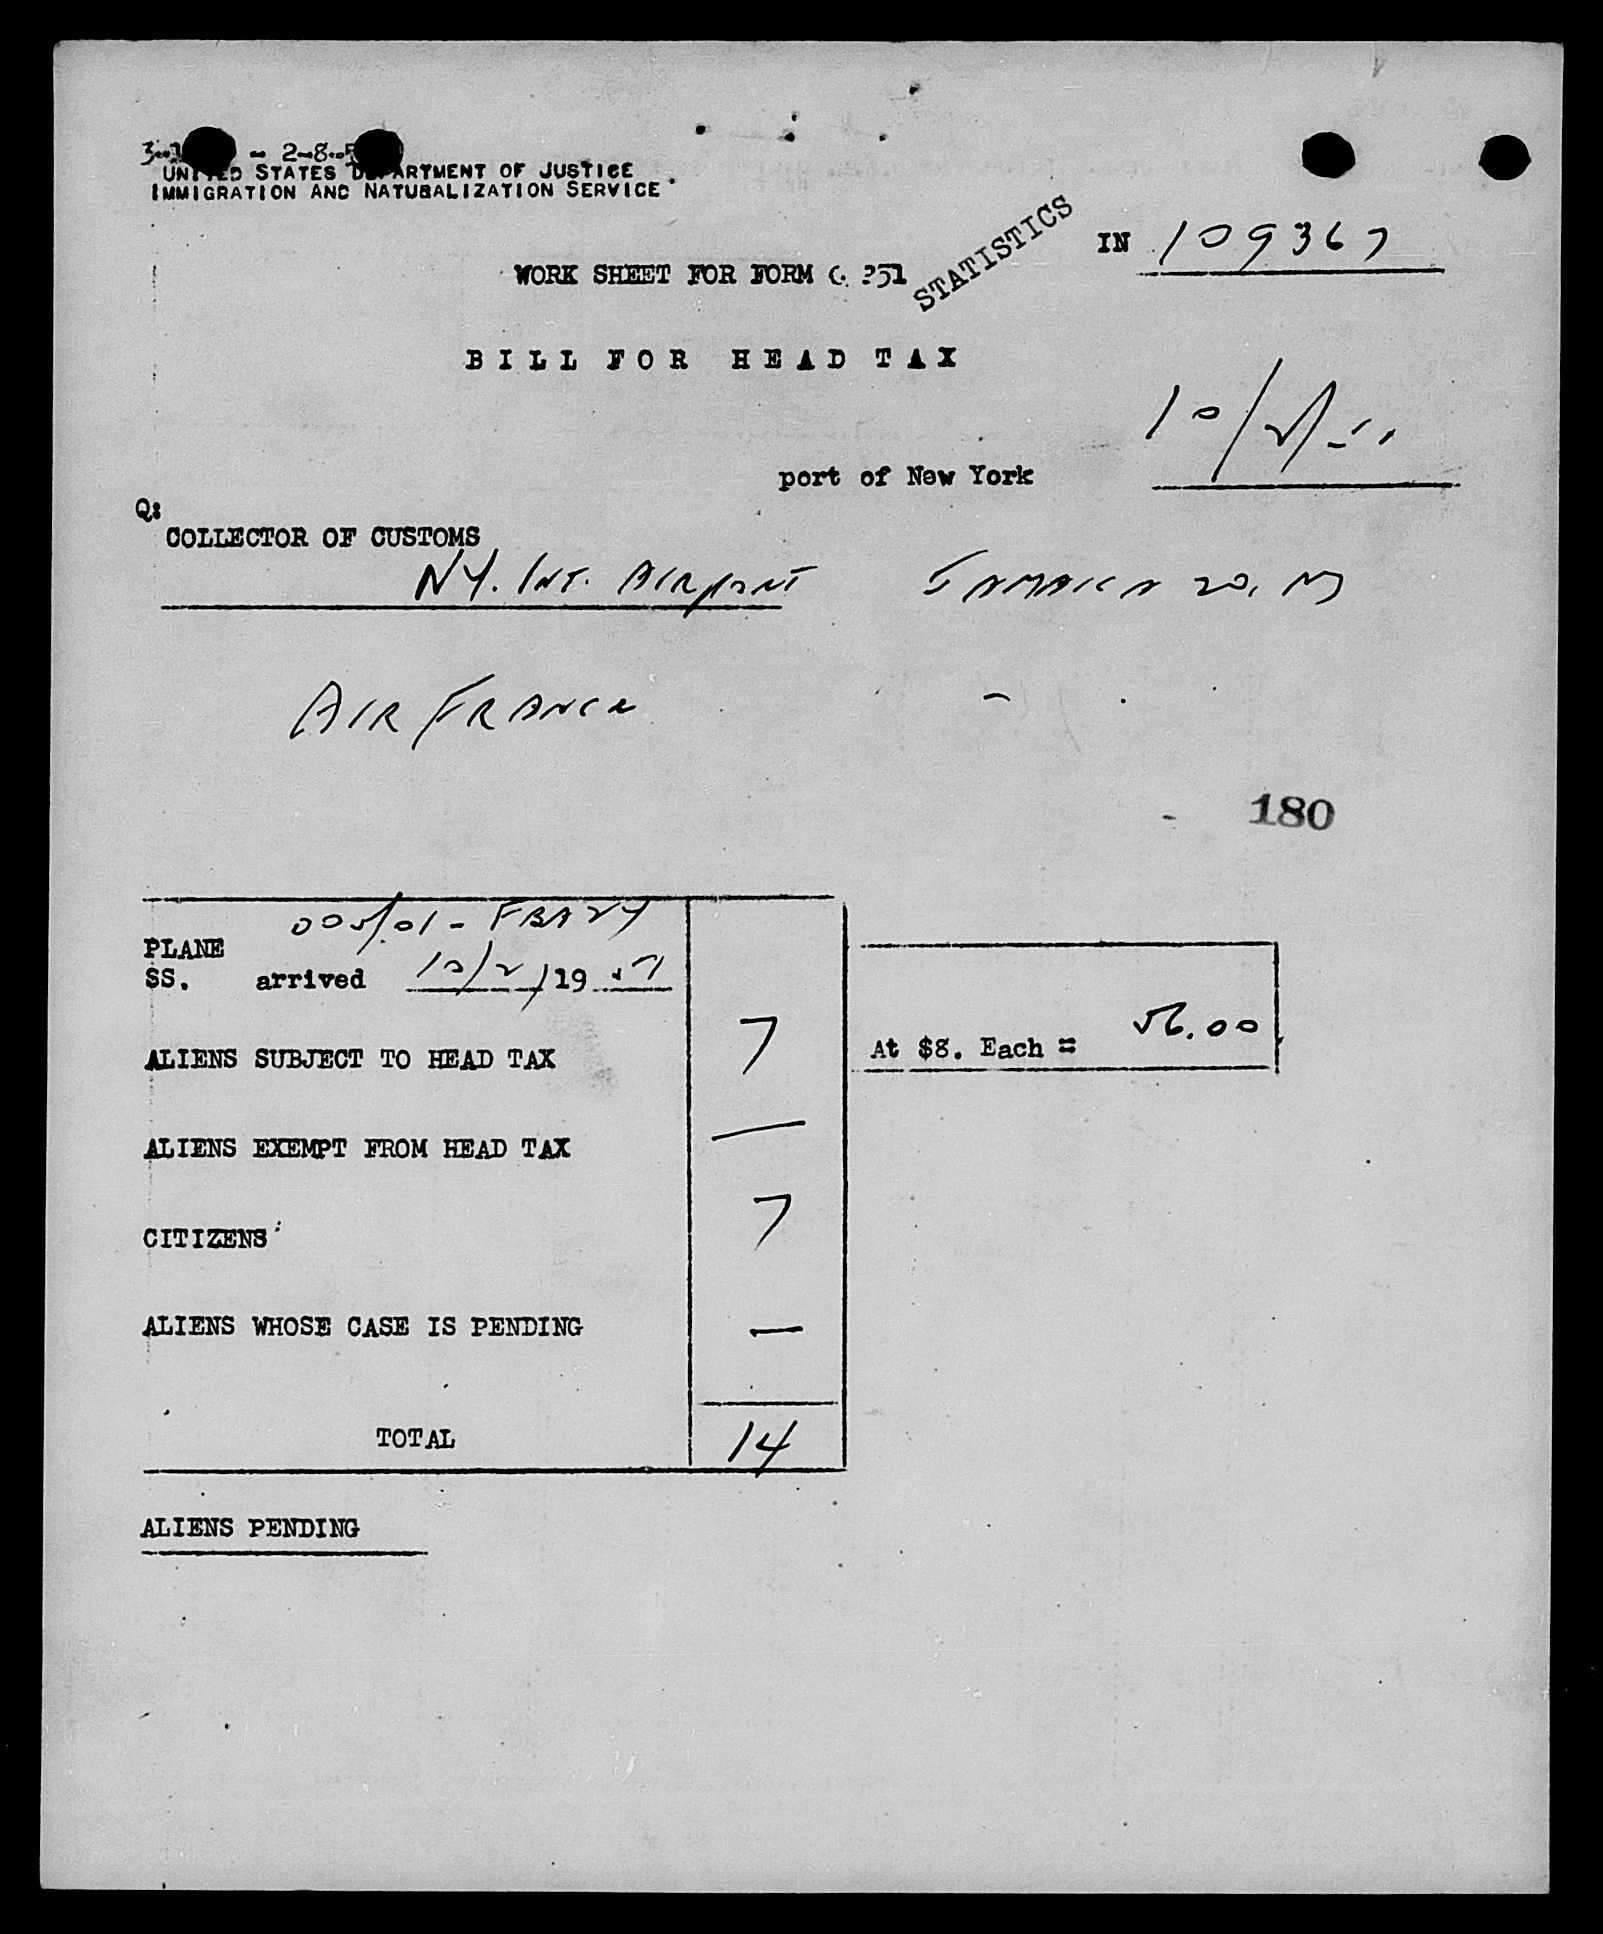 - 2-8-5
UNITED STATES DEPARTMENT OF JUSTICE
IMMIGRATION AND NATURALIZATION SERVICE
STATISTICS
IN 109367
WORK SHEET FOR FORM 351
BILL FOR HEAD TAX
port of New York
Q:
COLLECTOR OF CUSTOMS
NY. INT. AIRPORT JAMAICA 20, NY
AIR FRANCE
180
005/01 - FBAZY
PLANE
SS. arrived 10/2/19 51
ALIENS SUBJECT TO HEAD TAX 7 At $8. Each = 56.00
ALIENS EXEMPT FROM HEAD TAX —
CITIZENS 7
ALIENS WHOSE CASE IS PENDING —
TOTAL 14
ALIENS PENDING